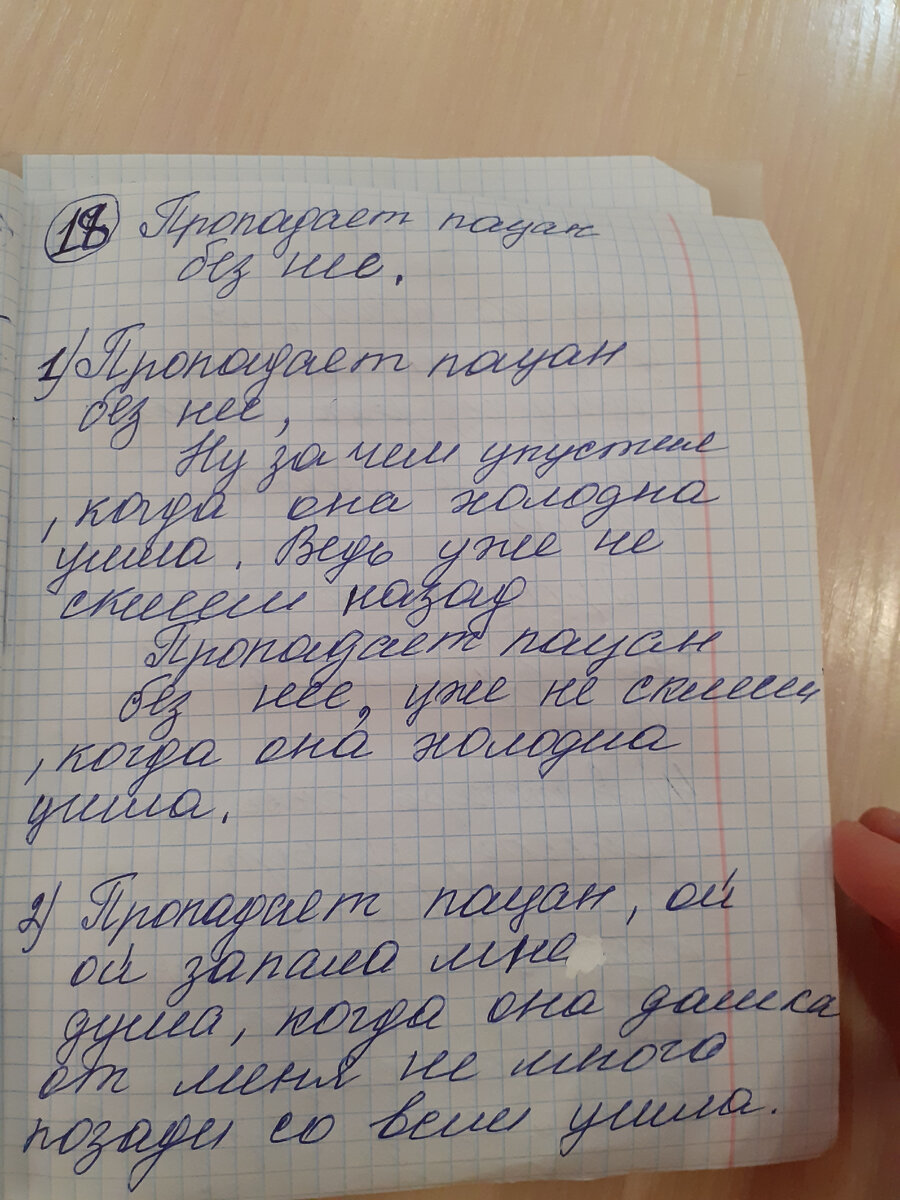 18 Пропадает пацан
без нее.
1) Пропадает пацан
без нее,
Ну за чем упустил
, когда она холодна
ушла. Ведь уже не
склеем назад
Пропадает пацан
без нее, уже не склеем
, когда она холодна
ушла.
2) Пропадает пацан, ой
ой запала мне
думала, когда она
от меня не много
позади со всем ушла.